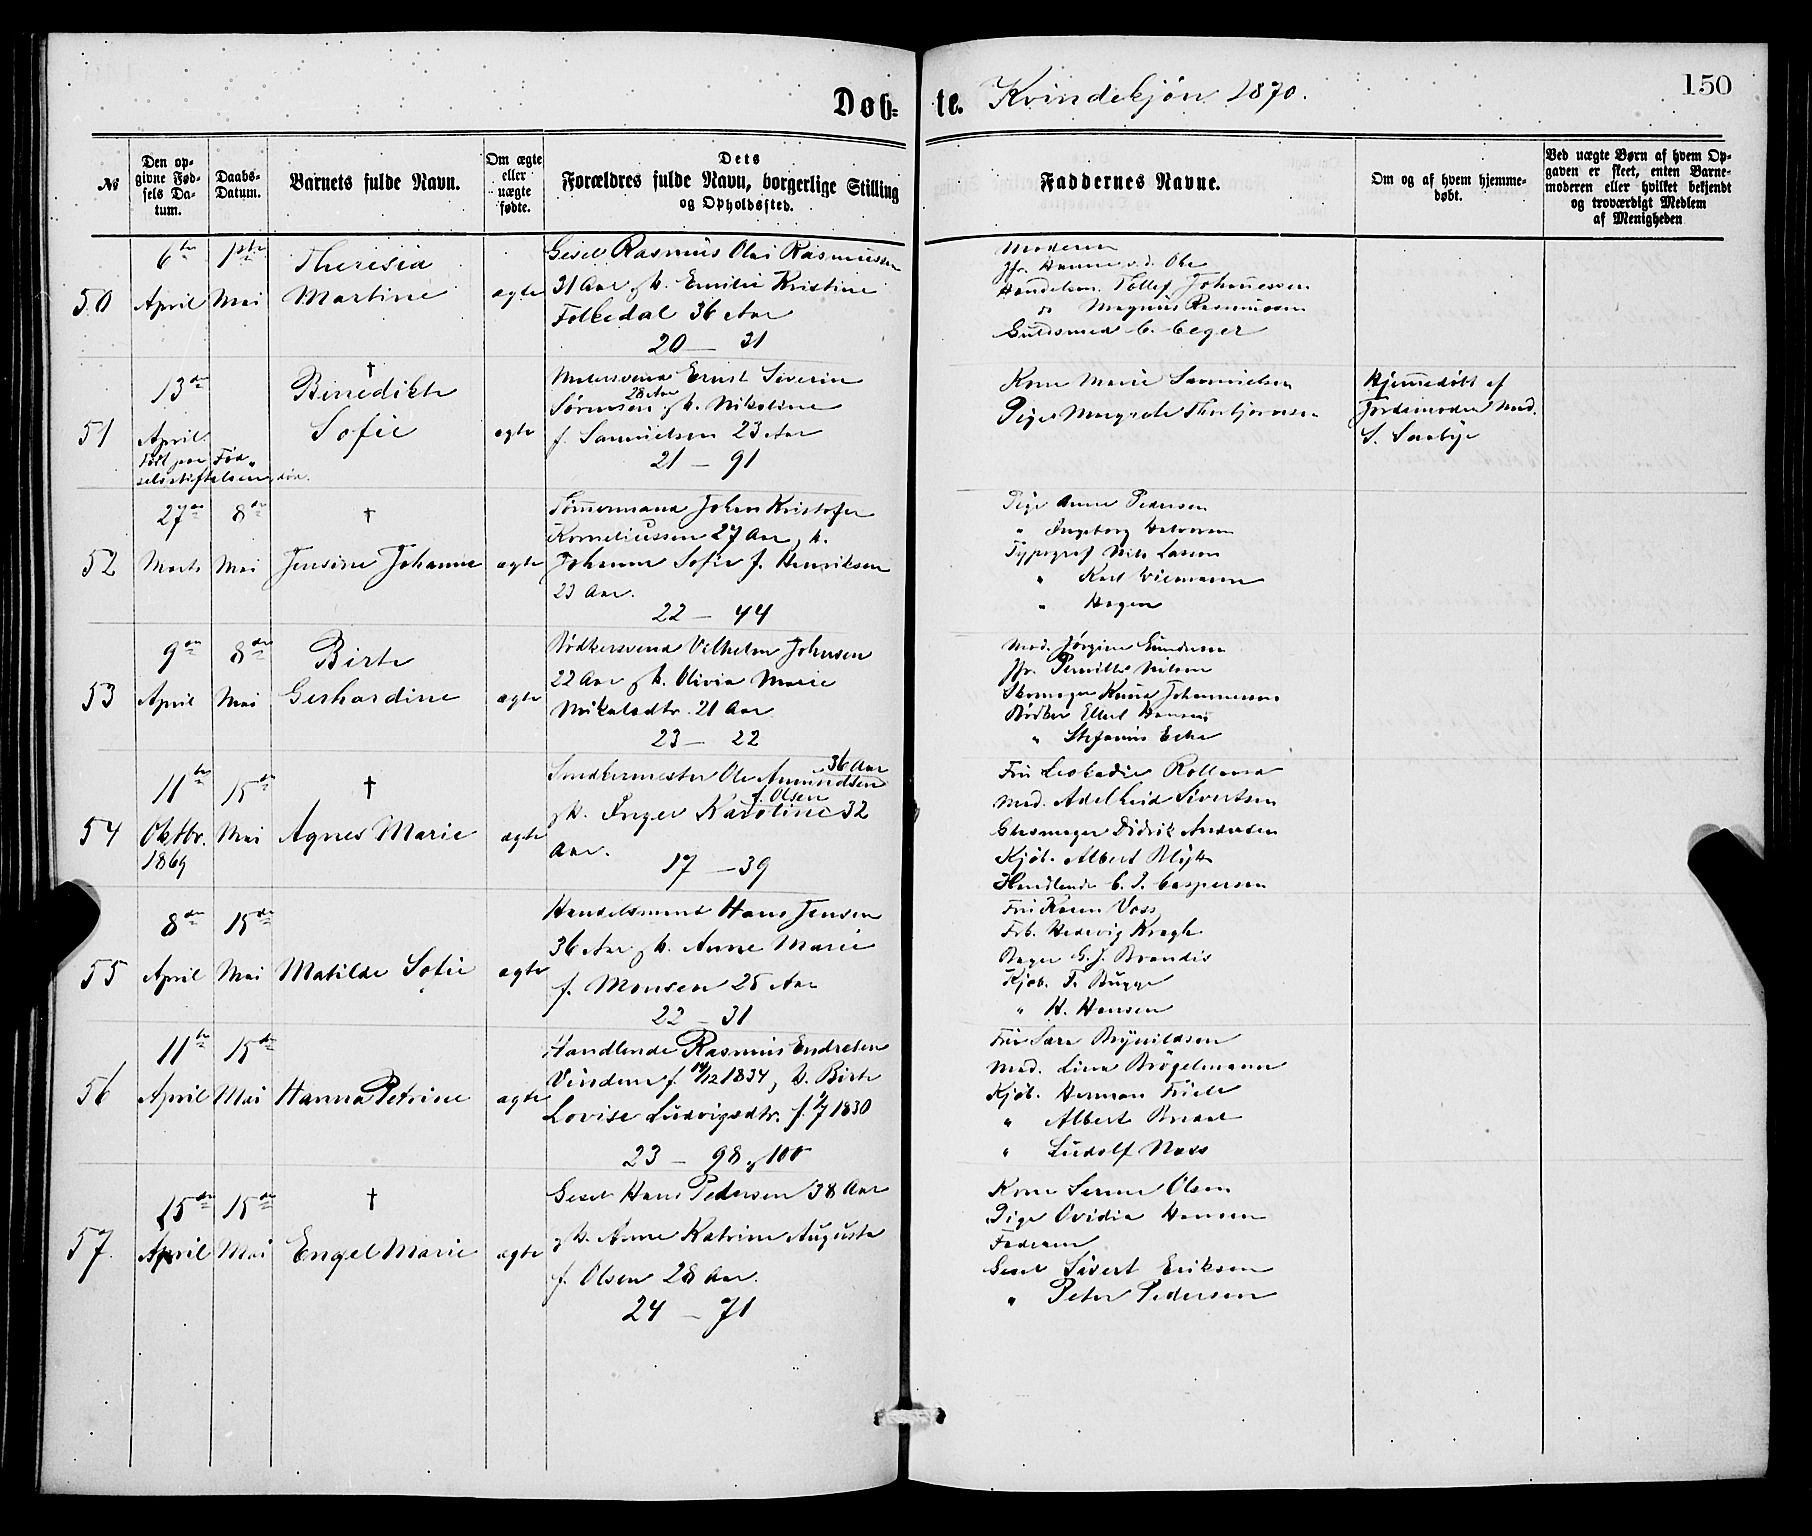 Døb- te. Kvindekjøn 1870.
150
№
Den op-
givne Fød-
sels Da-
tum.
Daabs-
Datum.
Barnets fulde Navn.
Om ægte
eller
uægte
fødte.
Dets
Forældres fulde Navn, borgerlige Stilling
og Opholdssted.
Faddernes Navne.
Om og af hvem hjemme-
døbt.
Ved uægte Børn af hvem Op-
gaven er skeet, enten Barne-
moderen eller hvilket bekjendt
og troværdigt Medlem
af Menigheden
50
6te April
1ste Mai
Theresia
Martine
ægte
Gesel Rasmus Olai Rasmussen
31 Aar & H. Emilie Kristine
Follesdal 36 Aar
20 — 31
Moderen
Jfr. Hanne
Handelsm. Tollef Johannesen
" Magnus Rasmussen
Guldsmed C. Ceger
51
13de April
født paa Fød-
selsstiftelsen
†
Benedikte
Sofie
ægte
Ernst Severin
Sørensen 28 Aar & H. Nikoline
f. Samuelsen 23 Aar
21 — 91
Kone Marie Samuelsen
Pige Margrete Thorbjørnsen
Hjemmedøbt af
Jordemoder Mad.
S. Saabye
52
27de Marts
8de Mai
†
Jensine Johanne
ægte
Tømmermand Johan Kristofer
Korneliussen 27 Aar, H.
Johanne Sofie f. Henriksen
23 Aar.
22 — 44
Pige Anne Pedersen
" Ingeborg Halvorsen
Typograf Nils Larsen
" Karl Wiemann
" Hagen
53
9de April
8de Mai
Birte
Gerhardine
ægte
Bødkersvend Vilhelm Johnsen
22 Aar & H. Olivia Marie
Nikolsdtr. 21 Aar
23 — 22
Mad. Jørgine Gundersen
Jfr. Pernille Nilsen
Skomager Knud Johannessen
Bødker Ellert Hansen
" Stefanus Eske
54
11te Oktbr.
1869
15de Mai
†
Agnes Marie
ægte
Snedkermester Ole Amundsen 36 Aar
& H. Inger Karoline f. Olsen 32
Aar.
17 — 39
Fru Leokadie Rolland
Mad. Adelheid Sivertsen
Glasmager Didrik Andersen
Kjøb. Albert Blytt
Handlende C. J. Caspersen
55
8de April
15de Mai
Matilde Sofie
ægte
Handelsmand Hans Jensen
36 Aar & H. Anne Marie
f. Monsen 25 Aar
22 — 31
Fru Karen Voss
Frk. Hedevig Kragh
Bager G. J. Brandis
Kjøb. F. Bugge
" H. Hansen
56
11te April
15de Mai
Hanna Petrine
ægte
Handlende Rasmus Endresen
Vindenes f. 14/12 1834, H. Birte
Lovise Ludvigsdtr. f. 1/7 1830
23 — 98 & 100
Fru Sara Brynildsen
Mad. Lina Brøgelmann
Kjøb. Herman Friele
" Albert Bredal
" Ludolf Næss
57.
25de April
15de Mai
†
Engel Marie
ægte
Gesel Hans Pedersen 38 Aar
& H. Anne Katrine Auguste
f. Olsen 28 Aar.
24 — 71
Kone Serine Olsen
Pige Ovidia Hansen
Faderen
Gesel Sivert Eriksen
" Peter Pedersen